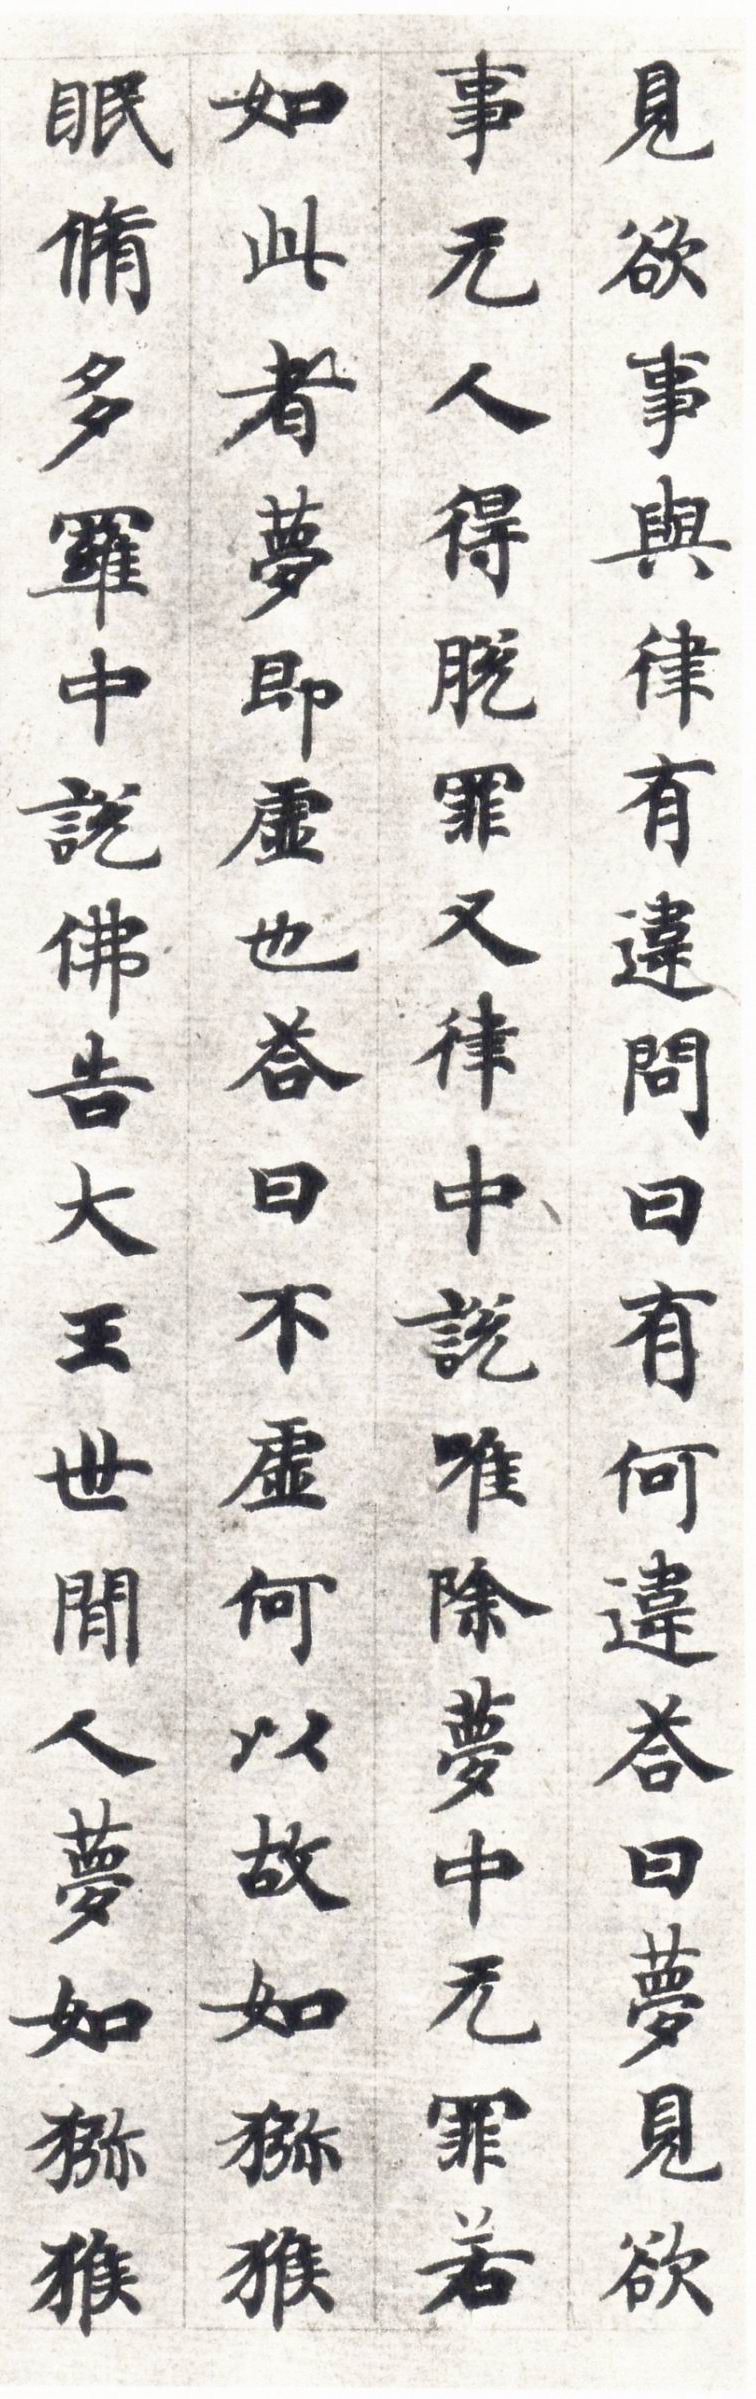 見欲事與律有違問曰有何違荅曰夢見欲
事无人得脫罪又律中說唯除夢中无罪若
如此者夢即虛也荅曰不虛何以故如猕猴
眠脩多羅中說佛告大王世間人夢如猕猴